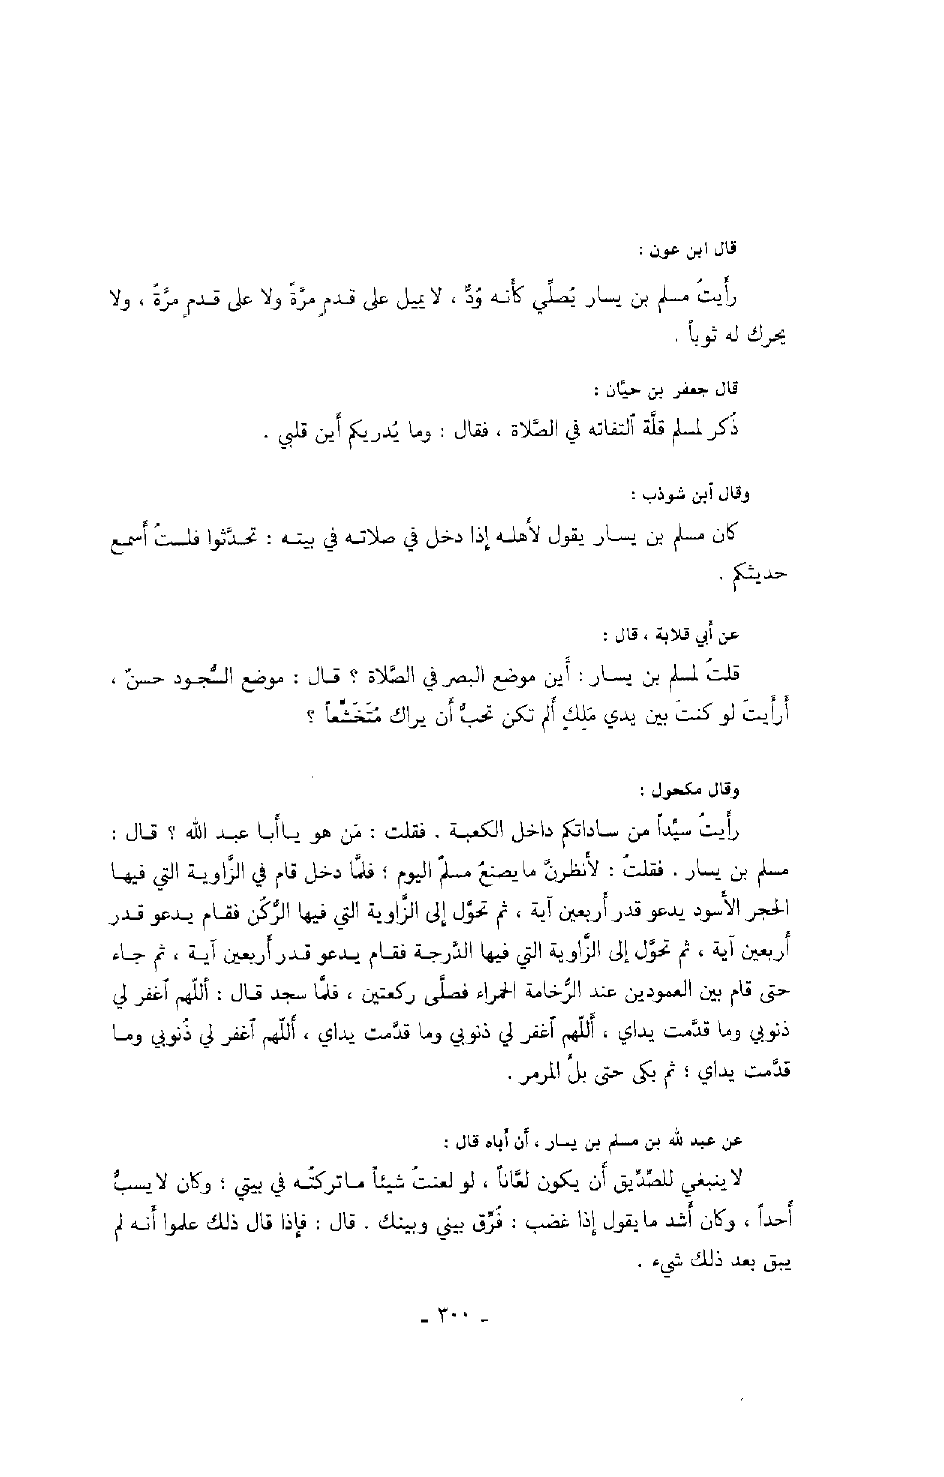 قال ابن عون :
رأيتُ مسلم بن يسار يُصلِّي كأنه وُدٌّ ، لا يميل على قدمٍ مرَّةً ولا على قدمٍ مرَّةً ، ولا
يحرك له ثوباً .
قال جعفر بن حيَّان :
ذُكر لمسلم قلَّة ٱلتفاته في الصَّلاة ، فقال : وما يُدريكم أين قلبي .
وقال ٱبن شوذب :
كان مسلم بن يسار يقول لأهله إذا دخل في صلاته في بيته : تحدَّثوا فلستُ أسمع
حديثكم .
عن أبي قلابة ، قال :
قلتُ لمسلم بن يسار : أين موضع البصر في الصَّلاة ؟ قال : موضع السُّجود حسنٌ ،
أرأيتَ لو كنتَ بين يدي مَلِكٍ ألم تكن تحبُّ أن يراك مُتَخَشِّعاً ؟
وقال مكحول :
رأيتُ سيِّداً من ساداتكم داخل الكعبة . فقلت : مَن هو ياأبا عبد الله ؟ قال :
مسلم بن يسار . فقلتُ : لأنظرنَّ مايصنعُ مسلمٌ اليوم ؛ فلمَّا دخل قام في الزَّاوية التي فيها
الحجر الأسود يدعو قدر أربعين آية ، ثم تحوَّل إلى الزَّاوية التي فيها الرُّكن فقام يدعو قدر
أربعين آية ، ثم تحوَّل إلى الزَّاوية التي فيها الدَّرجة فقام يدعو قدر أربعين آية ، ثم جاء
حتى قام بين العمودين عند الرُّخامة الحمراء فصلَّى ركعتين ، فلمَّا سجد قال : أللّهم ٱغفر لي
ذنوبي وما قدَّمت يداي ، أللّهم ٱغفر لي ذنوبي وما قدَّمت يداي ، أللّهم ٱغفر لي ذُنوبي وما
قدَّمت يداي ؛ ثم بكى حتى بلَّ المرمر .
عن عبد لله بن مسلم بن يسار ، أن أباه قال :
لا ينبغي للصِّدِّيق أن يكون لعَّاناً ، لو لعنتُ شيئاً ماتركتُه في بيتي ؛ وكان لا يسبُّ
أحداً ، وكان أشد مايقول إذا غضب : فُرِّق بيني وبينك . قال : فإذا قال ذلك علموا أنه لم
يبق بعد ذلك شيء .
- ٣٠٠ -